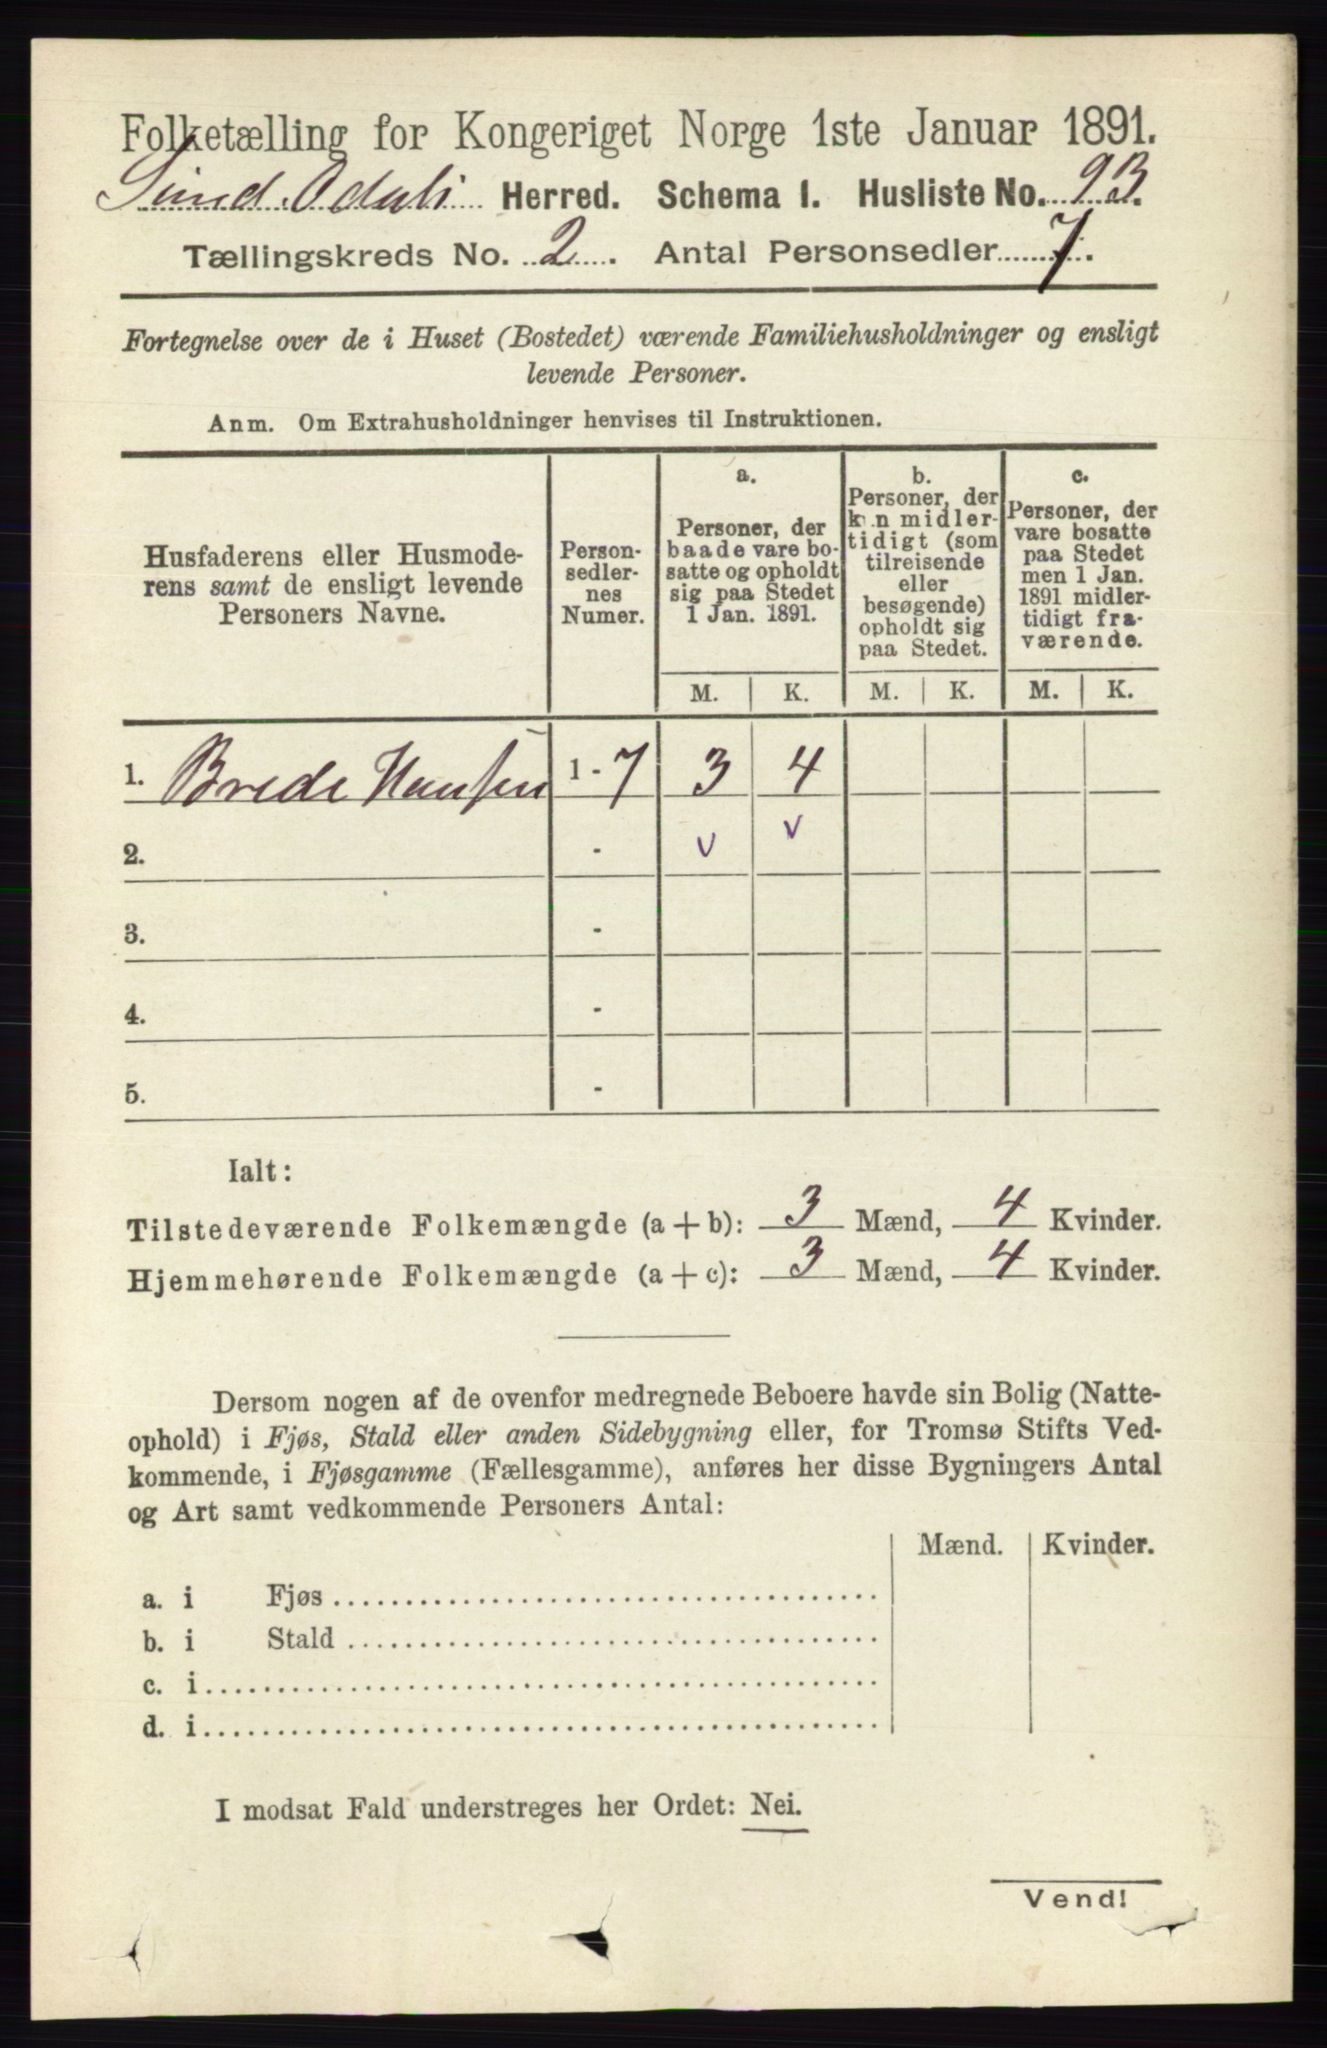 Folketælling for Kongeriget Norge 1ste Januar 1891.
Sønd. Odals Herred. Schema 1. Husliste No. 93.
Tællingskreds No. 2. Antal Personsedler 7.
Fortegnelse over de i Huset (Bostedet) værende Familiehusholdninger og ensligt
levende Personer.
Anm. Om Extrahusholdninger henvises til Instruktionen.
Husfaderens eller Husmode-
rens samt de ensligt levende
Personers Navne.
Person-
sedler-
nes
Numer.
a.
Personer, der
baade vare bo-
satte og opholdt
sig paa Stedet
1 Jan. 1891.
b.
Personer, der
kun midler-
tidigt (som
tilreisende
eller
besøgende)
opholdt sig
paa Stedet.
c.
Personer, der
vare bosatte
paa Stedet
men 1 Jan.
1891 midler-
tidigt fra-
værende.
M. K. M. K. M. K.
1. Brede Hansen 1 - 7 3 4
2. - v v
3. -
4. -
5. -
Ialt:
Tilstedeværende Folkemængde (a + b): 3 Mænd, 4 Kvinder.
Hjemmehørende Folkemængde (a + c): 3 Mænd, 4 Kvinder.
Dersom nogen af de ovenfor medregnede Beboere havde sin Bolig (Natte-
ophold) i Fjøs, Stald eller anden Sidebygning eller, for Tromsø Stifts Ved-
kommende, i Fjøsgamme (Fællesgamme), anføres her disse Bygningers Antal
og Art samt vedkommende Personers Antal:
Mænd. Kvinder.
a. i Fjøs
b. i Stald
c. i
d. i
I modsat Fald understreges her Ordet: Nei.
Vend!